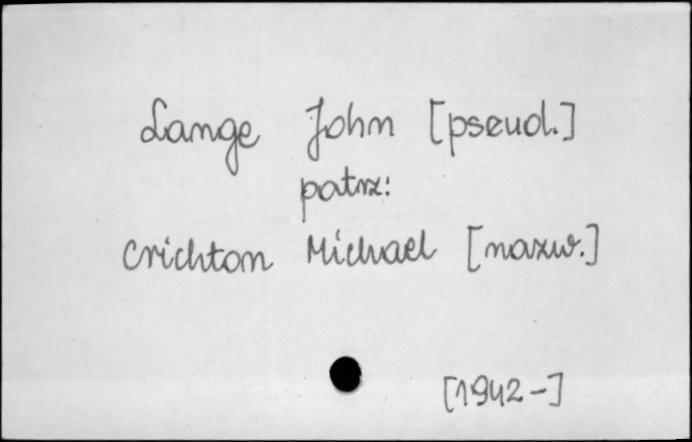 Lange John [pseud.]
patrz:
Crichton Michael [nazw.]
[1942-]